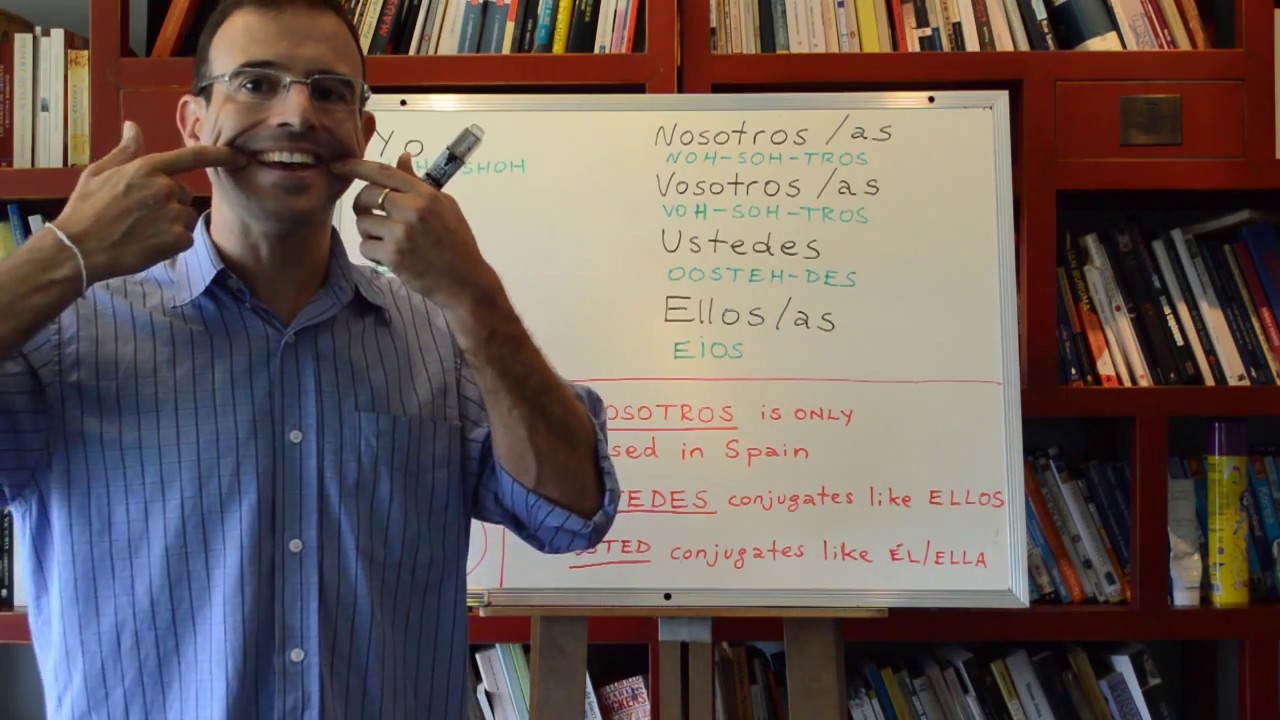 Yo
SHOH
Nosotros /as
NOH-SOH-TROS
Vosotros /as
VOH-SOH-TROS
Ustedes
OOSTEH-DES
Ellos/as
EiOS
OSOTROS is ONLY
sed in Spain
TEDES conjugates like ELLOS
STED conjugates like ÉL/ELLA
MAUS